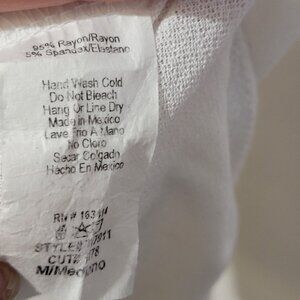 95% Rayon/Rayon
5% Spandex/Elastano
Hand Wash Cold
Do Not Bleach
Hang Or Line Dry
Made in Mexico
Lave Frio A Mano
No Cloro
Secar Colgado
Hecho En Mexico
RN #
STYLE#
CUT#
M/Mediano